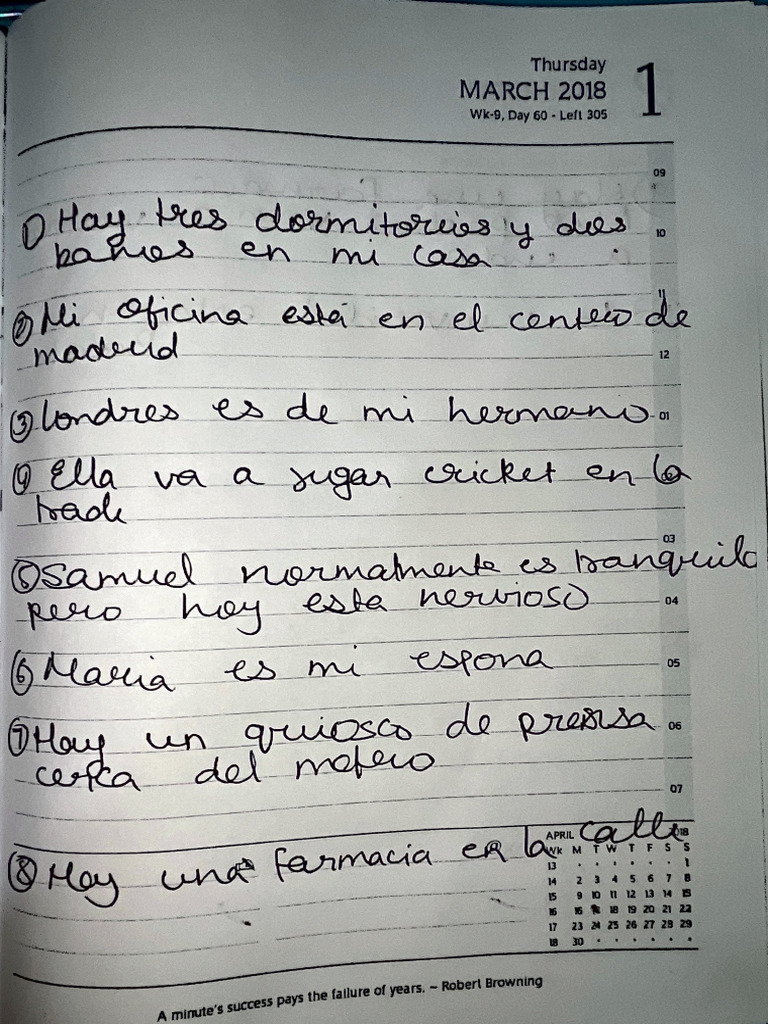 Thursday
MARCH 2018 1
Wk-9, Day 60 - Left 305
09
1) Hay tres dormitorios y dos
10
baños en mi casa
11
② Mi oficina está en el centro de
madrid
12
③ Londres es de mi hermano
01
④ Ella va a jugar cricket en la
trade
03
⑤ Samuel normalmente es tranquilo
pero hoy esta nervioso
04
⑥ Maria es mi espona
05
⑦ Hay un quiosco de prensa
06
cerca del
07
⑧ Hay una farmacia en la calle
APRIL 18
WK M T W T F S S
13 • • • • • • 1
14 2 3 4 5 6 7 8
15 9 10 11 12 13 14 15
16 16 18 19 20 21 22
17 23 24 25 26 27 28 29
18 30 • • • • • •
A minute's success pays the failure of years. ~ Robert Browning